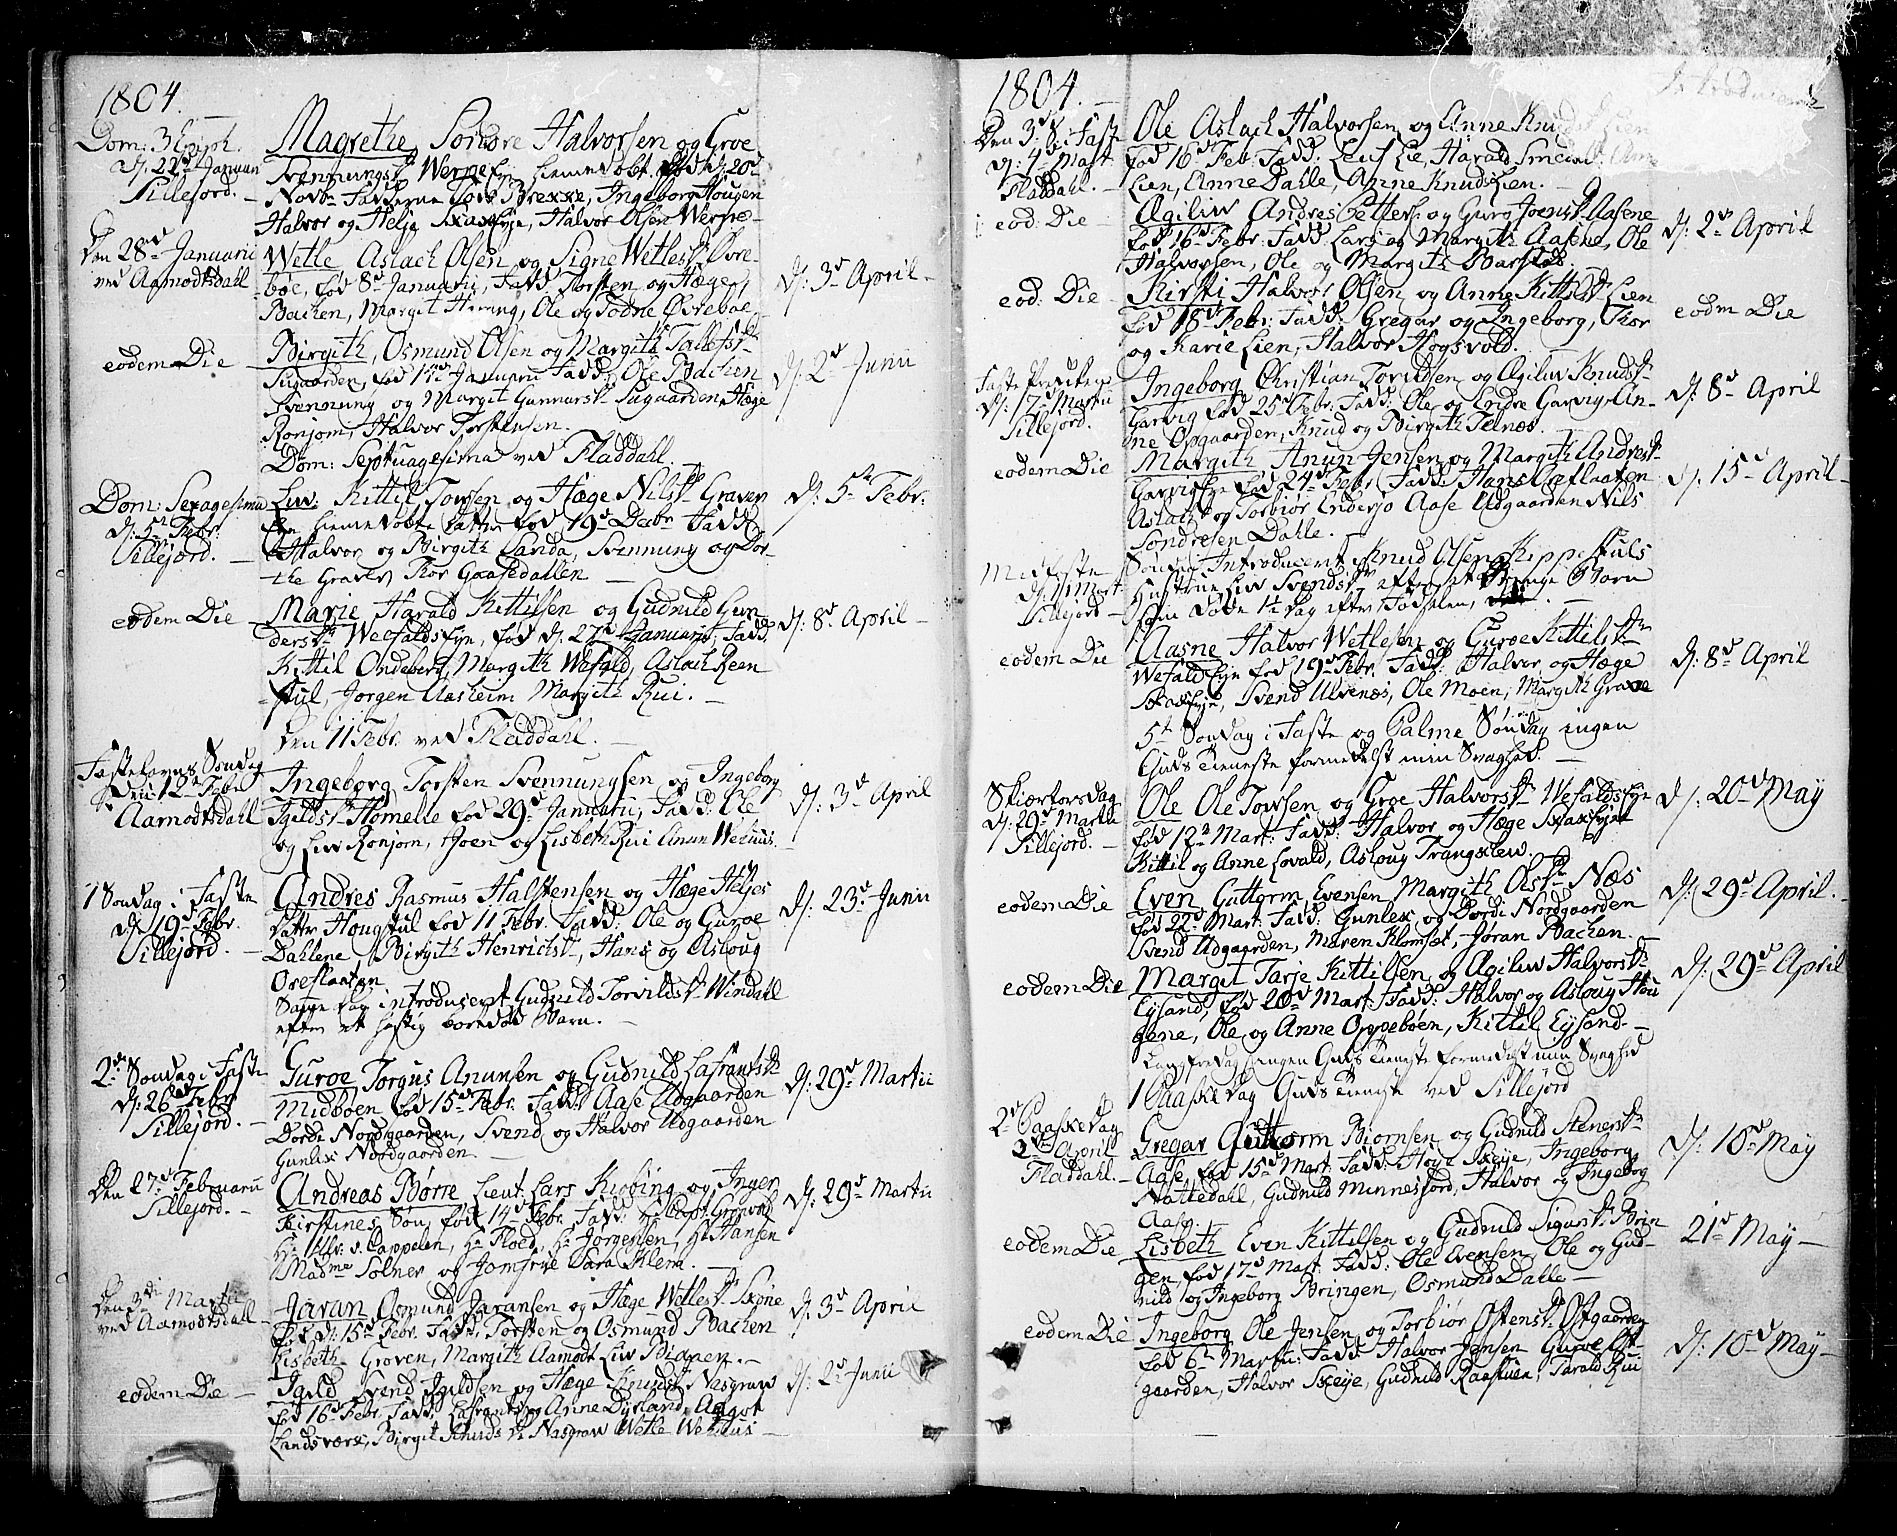 1804.
Dom: 3 Epiph.
d: 22d Januari
Sillejord.
Magrethe, Sondre Halvorsen og Groe
Svennungsd. Werpe Eje hiemedøbt. fød d: 20d
Novbr Fadderne Tov Brekke, Ingeborg Hougen
Halvor og Helje Skaar Eje, Halvor Olsen Werpe
Den 28de Januarii
ved Aamodtsdahl
Wetle Aslach Olsen og Signe Wetlesd. Øvre-
bøe, fød 8d Januarii, Fadd Torsten og Hæge
Bachen, Margit Ole og Todne Øvreboe
d: 3d April
eodem Die
Birgith, Osmund Olsen og Margith Tallefsd.
Sugaarden, fød 14d Januarii Fadd, Ole Bachen
Svennung og Margit Gunnarsd. Sugaarden, Hæge
Ronjom, Halvor Torstensen.
d: 2d Junii
Dom: Septuagesima ved Fladdahl.
Dom: Sexagesima
d: 5t Febr:
Sillejord.
Liv. Kittil Tovsen og Hæge Nilsd. Graven
Eje, hiemedøbte Datter fød 19d Decbr Fadd
Halvor og Birgith Landa, Svennung og Dor-
the Graver Thor Gaasedallen
d: 5te Febr.
eodem Die
Marie Harald Kittilsen og Gudnild Gun
dersd. Weefalds Eje, fød d. 27d Januarii, Fadd.
Kittil Ondebert, Margith Wefald, Aslach Reen
stul, Jørgen Aasheim Margith Rui.
d: 8d April
Den 11 Febr. ved Fladdahl.
Fastelavns Søndag
den 12te Febr
Aamodtsdahl
Ingeborg Torsten Svennungsen og Ingeborg
Igildsd. Homelie fød 29d Januarii, Fadd: Ole
og Liv Ronjom, Joen og Lisbeth Rui Anun Wehuus.
d: 3d April
1 Søndag i Faste
d: 19d Febr.
Sillejord.
Andres Rasmus Halstensen og Hæge Heljes
Datter Hougstul fød 11 Febr. Fadd: Ole og Guroe
Dahlene, Birgith Henrichsd., Hans og Asloug
Oreflaaten
d: 23d Junii
Samme Dag introduceret Gudnild Torvildsd. Windahl
efter et hastig bortdød Barn.
2den Søndag i Faste
d: 26d Febr
Sillejord.
Guroe Torgus Anunsen og Gudnild Lafrantsd.
Midbøen fød 15d Febr. Fadd: Aase Udgaarden
Dordi Nordgaarden, Svend og Halvor Udgaarden
Gunlex Nordgaarden
d: 29d Martii
Den 27d Februarii
Sillejord.
Andreas Børre Lieut. Lars Kiobing og Inger
Kirstines Søn, fød 14d Febr. Fadd: Capt. Grønvold
Hr v. Cappelen, Hr Floed, Hr Jørgensen, Hr Hansen
Madme Solner og Jomfrue Sara Klem.
d: 29d Martii
Den 3die Martii
ved Aamodtsdahl
Jøran Asmund Jøransen og Hæge Wetlesd. Skone
fød d: 15d Febr. Fadd, Torsten og Osmund Bachen
Lisbeth Groven, Margith Aamodt Liv Bidnen.
d: 3d April
eodem Die
Igild Svend Igildsen og Hæge Knudsd. Nasgrav
fød 16d Febr. Fadd. Lafrants og Anne Dyrland, Aagot
Landsverk, Birgit Knuds d. Nasgrav Wetle Wehuus
d: 2d Junii
1804.
Introducerede
Den 3d S. i Fast
d: 4d Mart
Fladdahl.
Ole Aslach Halvorsen og Anne Knudsd. Lien
fød 16d Feb: Fadd. Leif Lie, Harald
Lien, Anne Dahle, Anne Knuds Lien.
eod: Die
Ægiliv Andres Petters. og Guro Joensd. Aasene
fød 16d Febr. Fadd: Lars og Margith Aasene, Ole
Halvorsen, Ole og Margith Barstad.
d: 2d April
eod: Die
Kirsti Halvor Olsen og Anne Kittilsd. Lien
fød 18d Febr: Fadd: Gregar og Ingeborg, Thor
og Karie Lien, Halvor Høgsvold.
eodm Die
Faste
d: 7d Martii
Sillejord.
Ingeborg Christian Torvildsen og Ægiliv Knudsd.
Garvig fød 25d Febr. Fadd: Ole og Endre Garvig, An-
ne Opgaarden, Knud og Birgith Telnæs.
d: 8d April
eodem Die
Margith Anun Jensen og Margith Andresd.
Garvigs Eje fød 24d Febr. Fadd: Hans Oreflaaten
Aslach og Torbiør Enderjo Aase Udgaarden Nils
Sondresen Dahle.
d: 15d April
Midfaste
d: 11 Mart
Sillejord
Søndag Introduceret Knud Olsen Kippestuls
Hustrue Liv Svendsd. efter et Drenge Barn
som døde 1½ Dag efter Fødselen,
eodem Die
Aasne Halvor Wetlesen og Guroe Kittilsd.
Wefald Eje fød 19d Febr. Fadd. Halvor og Hæge
Skaar Eje, Svend Ulvenes, Ole Moen, Margith Grave
d: 8d April
5t Søndag i Faste og Palme Søndag ingen
Guds Tieneste formedelst min Svaghed.
Skiærtorsdag
d: 29d Martii
Sillejord.
Ole Ole Tovsen og Groe Halvorsd. Wefalds Eje
fød 12te Mart: Fadd: Halvor og Hæge Skaar Ejet
Kittil og Anne Lovald, Asloug Trangsklev.
d: 20d May
eodem Die
Even Guttorm Evensen Margith Olsd. Næs
fød 22d Mart: Fadd: Gunlex og Dordi Nordgaarden
Svend Udgaarden, Maren Klomset, Jøran Bachen.
d: 29d April.
eodem Die
Margit Tarje Kittilsen og Ægiliv Halvorsd.
Eysand, fød 20d Mart: Fadd: Halvor og Asloug Hou
gene, Ole og Anne Oppebøen, Kittil Eysand.
d: 29d April
Langfredag ingen Guds Tieneste formedelst min Svaghed
1 Paaske Dag Guds Tieneste ved Sillejord
2d Paaske Dag
2d April
Fladdahl.
Gregar Guttorm Biørnsen og Gudnild Stenersd.
Aase, fød 15d Mart. Fadd: Hoye Skeije, Ingeborg
Nattedahl, Gudnild Minnesjord, Halvor og Ingeborg
Aase.
d: 10d May
eodem Die
Lisbeth Even Kittilsen og Gudnild Sigursd. Brin
gen, fød 17d Mart. Fadd: Ole Evensen, Ole og Gud-
nild og Ingeborg Bringen, Osmund Dalle
21d May
eodem Die
Ingeborg Ole Jensen og Torbiør Østensd. Østgaarden
fød 6te Martii: Fadd: Halvor Jensen Guroe Øst-
gaarden, Halvor Skeije, Gudnild Raastuen, Tarald Rui
d: 10d May